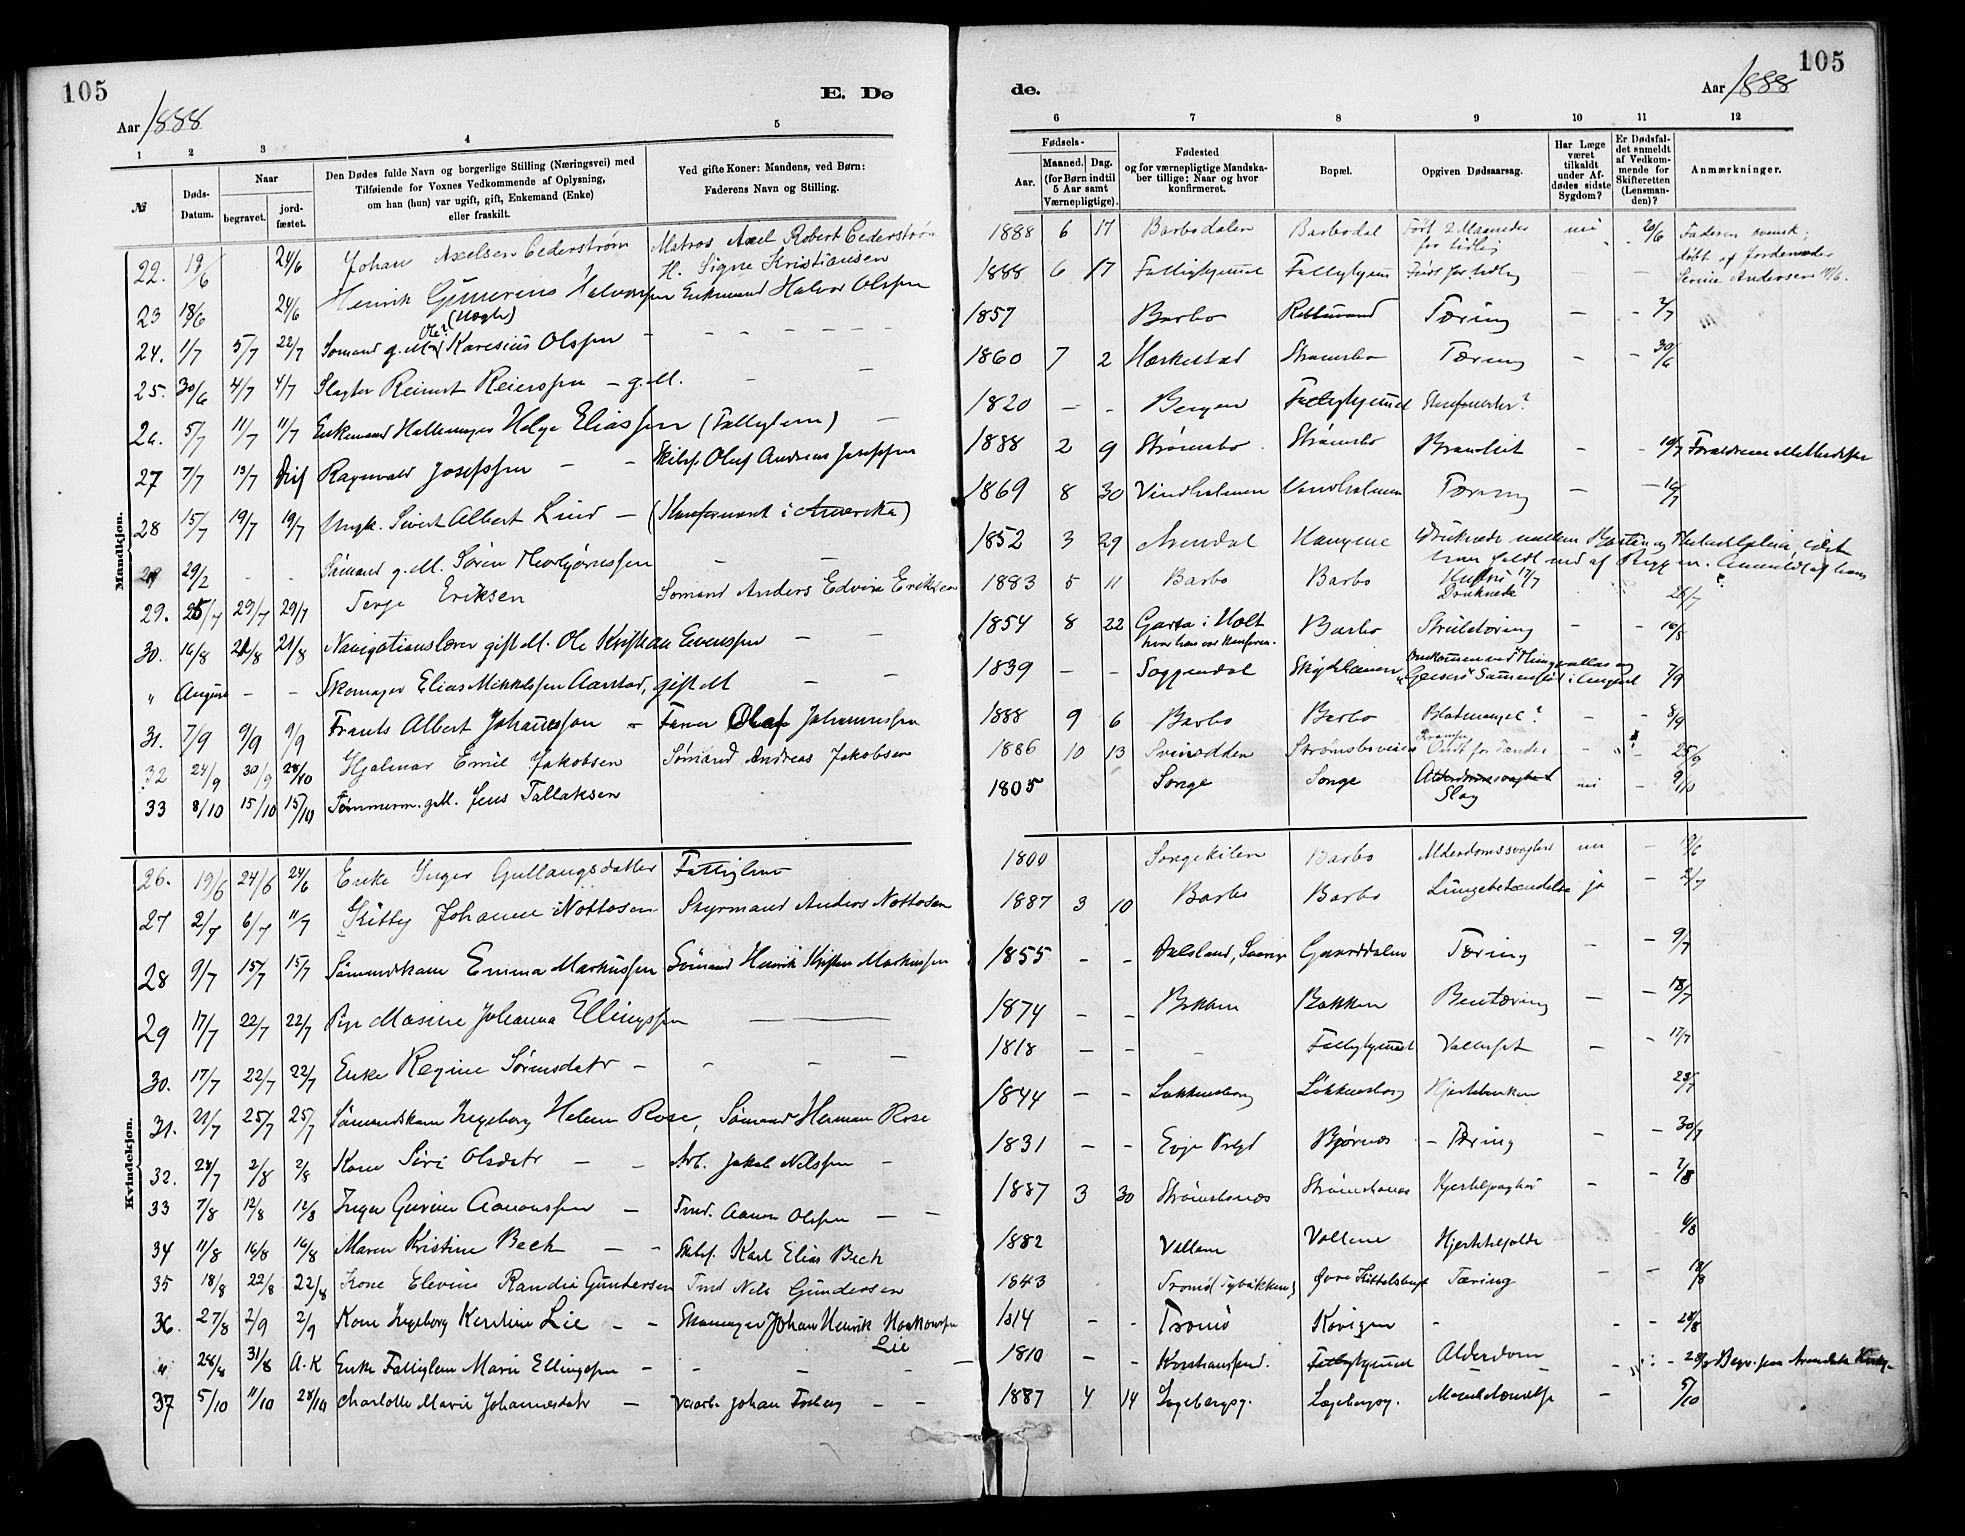 105
E. Dø
Aar 1888
1 2 3 4 5
№
Døds-
Datum.
Naar
begravet.
jord-
fæstet.
Den Dødes fulde Navn og borgerlige Stilling (Næringsvei) med
Tilføiende for Voxnes Vedkommende af Oplysning,
om han (hun) var ugift, gift, Enkemand (Enke)
eller fraskilt.
Ved gifte Koner: Mandens, ved Børn:
Faderens Navn og Stilling.
Mandkjøn.
22. 19/6 24/6 Johan Axelsen Cederstrøm Matros Axel Robert Cederstrøm
H. Signe Kristiansen
23 18/6 24/6 Henrik Halvorssen Enkemand Halvor Olssen
24. 1/7 5/7 22/7 Sømand g. M. Karesius Olssen
25. 30/6 4/7 4/7 Slagter Reinert Reierssen – g. M.
26. 5/7 11/7 11/7 Enkemand Helge Eliassen (Fattiglem) –
27 7/7 13/7 Ragnvald Josefssen – – Olaf Andreas Josefssen
28 15/7 19/7 19/7 Ungk. Sivert Albert Lind – (Konfirmeret i Amerika)
29/2 – – Sømand g. M. Søren
29. 25/7 29/7 29/7 Terje Eriksen Sømand Anders Edvin Eriksen
30. 16/8 21/8 21/8 Navigationslærer gift M. Ole Kristian Evenssen – –
" August – – Skomager Elias Mikkelssen Aarstad, gift M – –
31. 7/9 9/9 9/9 Frants Albert Johanssen – Olaf Johannessen
32 24/9 30/9 28/10 Hjalmar Emil Jakobsen Sømand Andreas Jakobsen
33 8/10 15/10 15/10 Tømmerm. g. M. Jens Tallaksen
Kvindekjøn.
26. 19/6 24/6 24/6 Enke Inger Gullaugsdatter Fattiglem
27 2/7 6/7 11/7 Kitty Johanne Nottosen Styrmand Anders Nottosen
28 9/7 15/7 15/7 Sømandskone Emma Markussen Sømand Henrik Markussen
29 17/7 22/7 22/7 Pige Masine Johanna Ellingssen
30. 17/7 22/7 22/7 Enke Regine Sørensdatr – – – –
31. 21/7 25/7 25/7 Sømandskone Ingeborg Helene Rose, Sømand Herman Rose
32. 28/7 2/8 2/8 Kone Siri Olsdatr – – Arb. Jakob Nilssen –
33 7/8 12/8 12/8 Inga Gurine Aanonssen – Tmd. Aanon Olssen – –
34 11/8 16/8 16/8 Maren Kristine Bech – – Karl Elias Bech
35 18/8 22/8 22/8 Kone Elevine Randine Gundersen Tmd Nils Gundersen
36. 27/8 2/9 2/9 Kone Ingeborg Kerstine Lie – – Skomager Johan Henrik Haakonssen
Lie
" 28/8 31/8 A.K Enke Fattiglem Marie Ellingssen – – – –
37 5/10 11/10 28/10 Charlotte Marie Johannesdatr – Johan – –
105
de.
Aar 1888
6 7 8 9 10 11 12
Fødsels-
Aar.
Maaned.
Dag.
(for Børn indtil
5 Aar samt
Værnepligtige).
Fødested
og for værnepligtige Mandska-
ber tillige: Naar og hvor
konfirmeret.
Bopæl.
Opgiven Dødsaarsag.
Har Læge
været
tilkaldt
under Af-
dødes sidste
Sygdom?
Er Dødsfal-
det anmeldt
af Vedkom-
mende for
Skifteretten
(Lensman-
den)?
Anmærkninger.
1888 6 17 Barbodalen Barbodal Født 2 Maaneder
for tidlig nei 20/6 Faderen svensk;
døbt af Jordemoder
1888 6 17 Fattighjemmet Født for tidlig – – Andersen
1857 Barbo Tæring – – 2/7
1860 7 2 Strømsbo Tæring – – 30/6
1820 – – Bergen Fattighjemmet
1888 2 9 Strømsbo Strømsbo – – 10/7 Forældrene
1869 8 30 Vindholmen Vindholmen Tæring – – 16/7
1852 3 29 Arendal Druknede mellem Boston og Philadelphia, idet
han faldt ned af Riggen. Anmeldt af hans
Hustru 17/7
1883 5 11 Barbo Barbo Druknede 26/7
1854 8 22 Garta i Holt
hvor han var Konfirm. Barbo Strubetæring – – 16/8
1839 – – Soggendal Omkommen ved "Thingvallas og
"Geisers" Sammenstød i August 7/9
1888 9 6 Barbo Barbo Blodmangel? – – 8/9
1886 10 13 Svinodden Strømsboveien Krampe
Ondt for Tænder – – 25/9
1805 Songe Songe Alderdomssvaghed
Slag nei – 9/10
1800 Songekilen Barbo Alderdomssvaghed nei – 19/6
1887 3 10 Barbo Barbo Lungebetændelse ja – 2/7
1855 – – Dalsland, Sverige Gaarddalen Tæring – – 9/7
1874 – – Bakken Bakken Bentæring – – 18/7
1818 – – – Fattighjemmet Vattersot – – 17/7
1844 – – Løkkensborg Løkkensborg 23/7
1831 – – Evje Prgd Bjørnes – Tæring – – 30/7
1887 3 30 Strømsbonæs Strømsbonæs – – 7/8
1882 Vollene Vollene 6/8
1843 Tromø (Tybakken) Øvre Kittelsbugt Tæring – – 18/8
1814 – – Tromø Kovigen – – – 28/8
1810 – – Kristianssand. Fattighjemmet Alderdom – – Begr. fra Arendals Kirke
1887 4 14 – 5/10